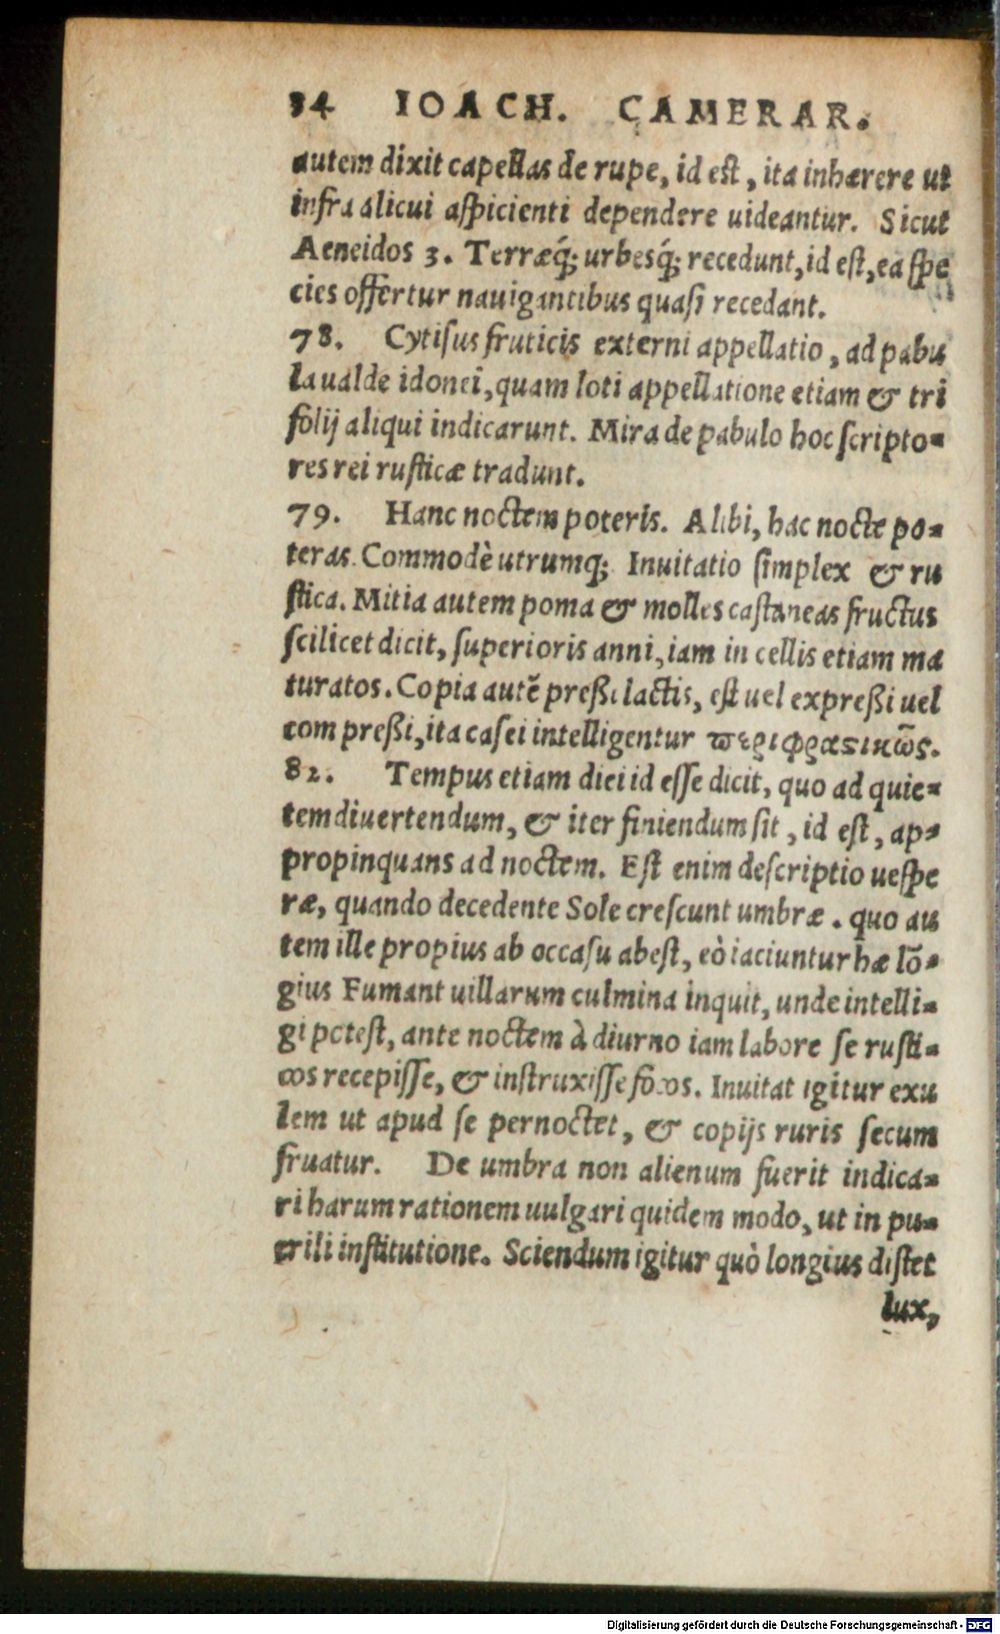 34 IOACH. CAMERAR.
autem dixit capellas de rupe, id est, ita inhærere ut
infra alicui aspicienti dependere uideantur. Sicut
Aeneidos 3. Terræq́; urbesq́; recedunt, id est, ea spe
cies offertur nauigantibus quasi recedant.
78. Cytisus fruticis externi appellatio, ad pabu
la ualde idonei, quam loti appellatione etiam & tri
folij aliqui indicarunt. Mira de pabulo hoc scripto-
res rei rusticæ tradunt.
79. Hanc noctem poteris. Alibi, hac nocte po-
teras. Commodè utrumq;. Inuitatio simplex & ru
stica. Mitia autem poma & molles castaneas fructus
scilicet dicit, superioris anni, iam in cellis etiam ma
turatos. Copia autē pressi lactis, est uel expressi uel
compressi, ita casei intelligentur περιφραστικῶς.
82. Tempus etiam diei id esse dicit, quo ad quie-
tem diuertendum, & iter finiendum sit, id est, ap-
propinquans ad noctem. Est enim descriptio uespe
ræ, quando decedente Sole crescunt umbræ. quo au
tem ille propius ab occasu abest, eò iaciuntur hæ lō-
gius Fumant uillarum culmina inquit, unde intelli-
gi potest, ante noctem à diurno iam labore se rusti-
cos recepisse, & instruxisse focos. Inuitat igitur exu
lem ut apud se pernoctet, & copijs ruris secum
fruatur. De umbra non alienum fuerit indica-
ri harum rationem uulgari quidem modo, ut in pu-
erili institutione. Sciendum igitur quò longius distet
lux,
Digitalisierung gefördert durch die Deutsche Forschungsgemeinschaft - DFG